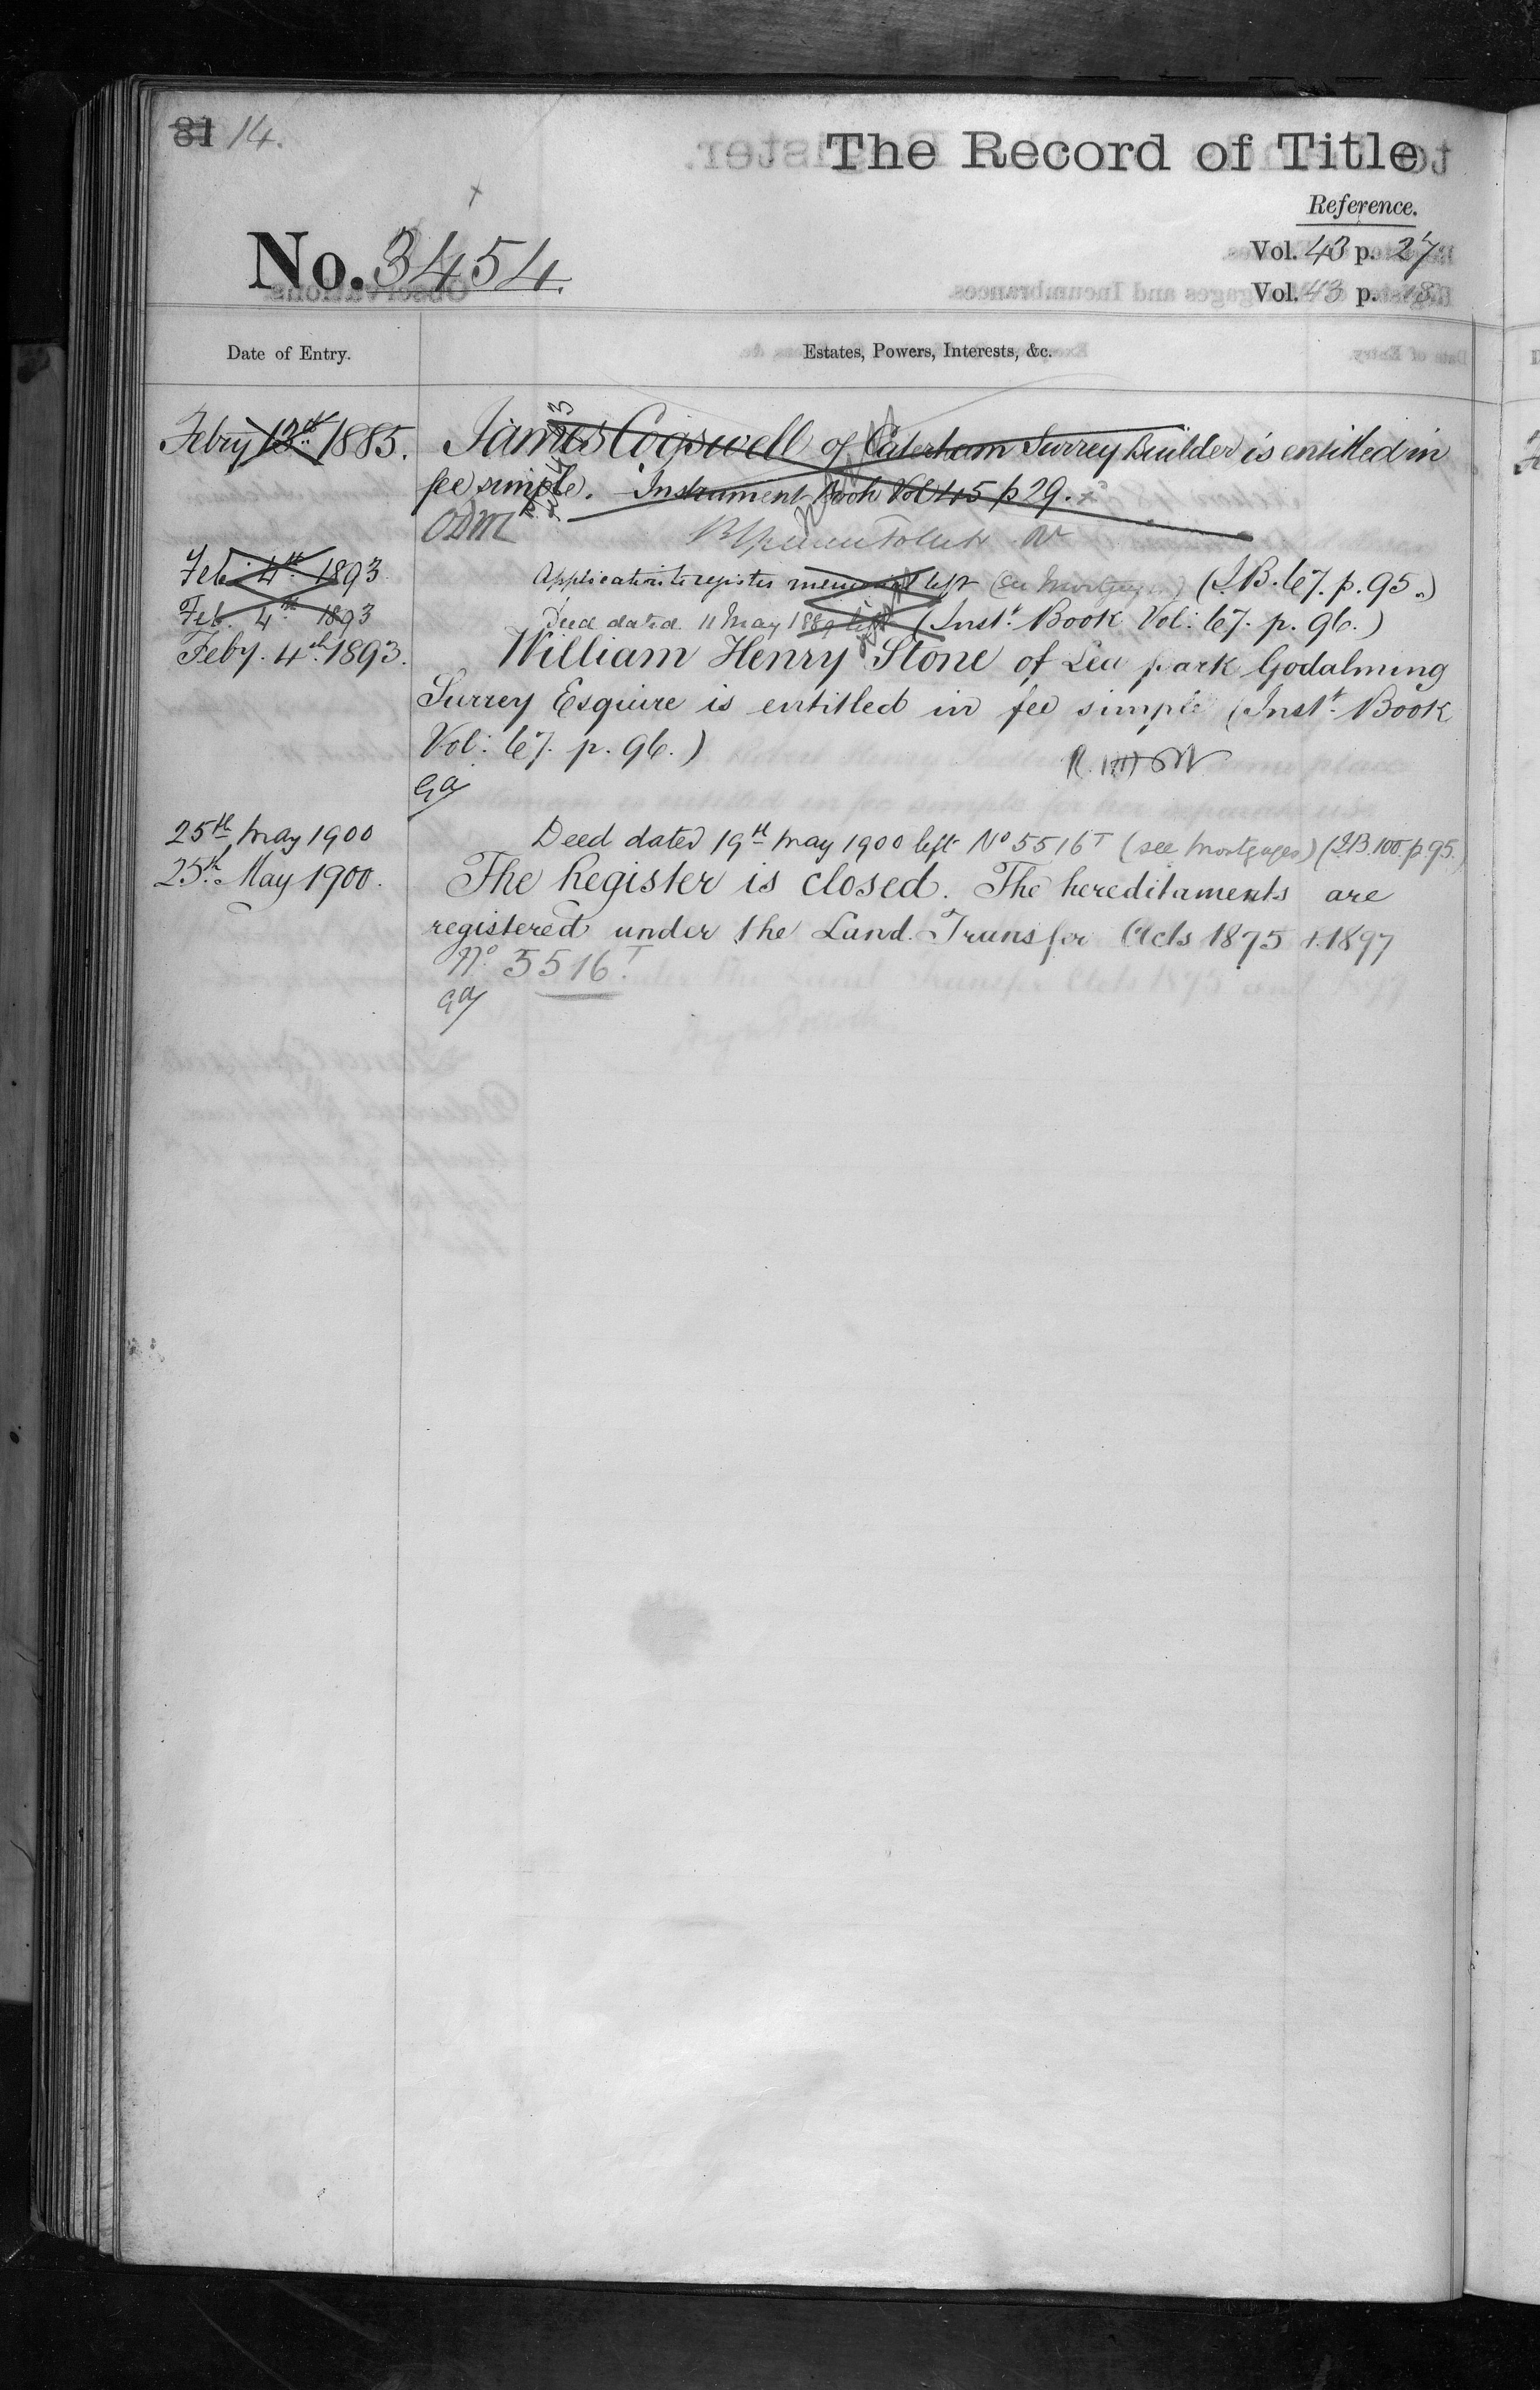 81 14.
The Record of Title
Reference.
No. 3454.
Vol. 43 p. 27
Vol. 43 p.
Date of Entry.
Estates, Powers, Interests, &c.
Febry 13th 1885. James Cogswell of Caterham Surrey Builder is entitled in
fee simple. Instrument Book Vol 45 p 29.
ODM
Feb. 4th 1893 Application to register left (See Mortgages) (I.B. 67. p. 95.)
Feb. 4th 1893 Deed dated 11 May 1889 left (Inst. Book Vol: 67. p. 96.)
Feby. 4th 1893. William Henry Stone of Lea park Godalming
Surrey Esquire is entitled in fee simple (Inst. Book
Vol: 67. p. 96.)
25th May 1900 Deed dated 19th May 1900 left No 5516T (see Mortgages) (I.B. 100. p. 95.)
25th May 1900. The Register is closed. The hereditaments are
registered under the Land Transfer Acts 1875 + 1897
No 5516T